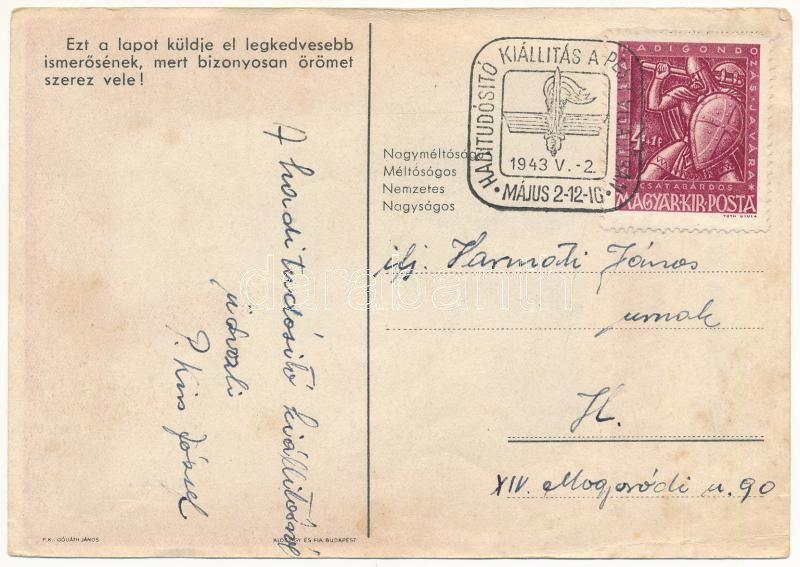 Ezt a lapot küldje el legkedvesebb
ismerősének, mert bizonyosan örömet
szerez vele!
A haditudósító kiállításról
üdvözli
P. Kiss József
P. K.: GÓLIÁTH JÁNOS
ÉS FIA BUDAPEST
Nagyméltóságú
Méltóságos
Nemzetes
Nagyságos
HADITUDÓSITÓ KIÁLLITÁS A
1943 V. -2.
MÁJUS 2-12-IG
HADIGONDOZÁS JAVÁRA
4+1f
CSATABÁRDOS
MAGYAR·KIR·POSTA
TÓTH GYULA
ifj. Harmati János
urnak
H.
XIV. Mogyoródi u. 90
darabanth